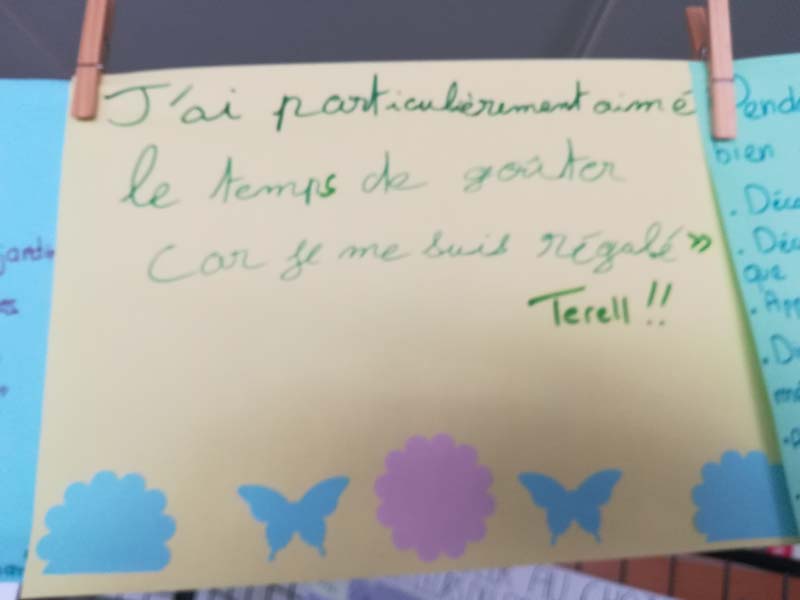 J'ai particulièrement aimé
le temps de goûter
Car je me suis régalé »
Terell !!
Pend
bien
. Déco
. Déc
que
. App
jardin